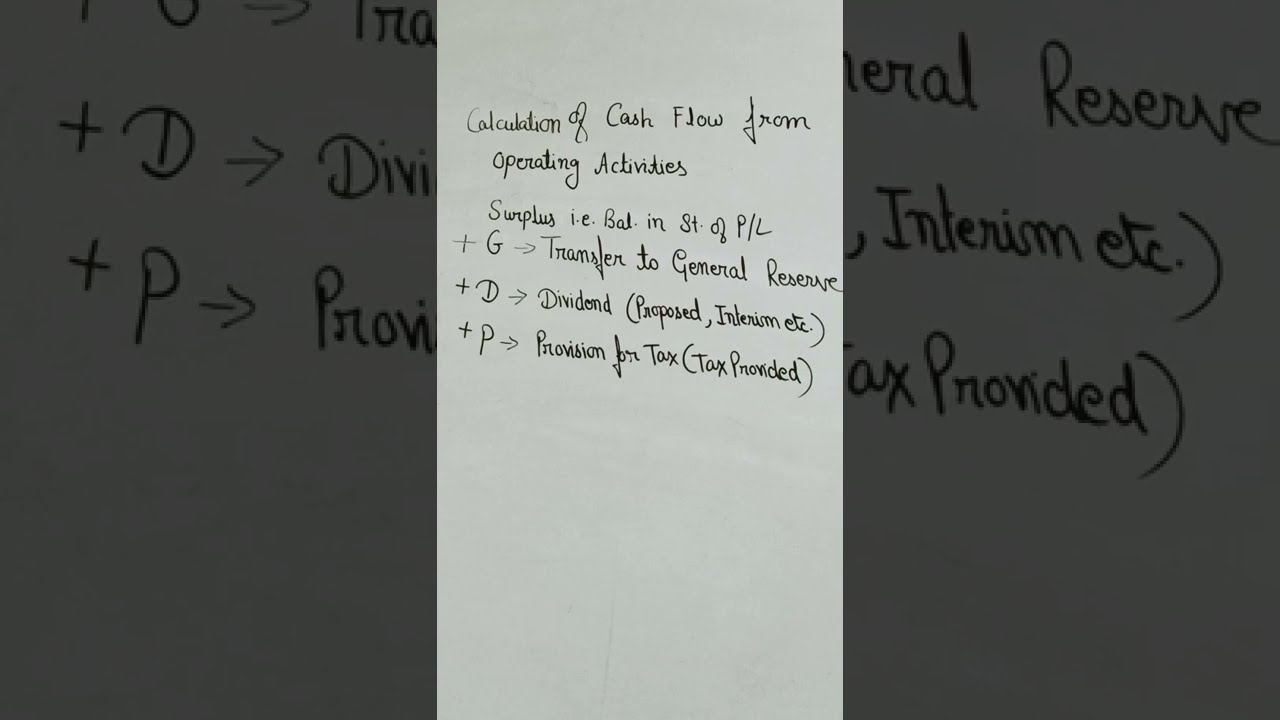 Calculation of Cash Flow from
Operating Activities
Surplus i.e. Bal. in St. of P/L
+ G → Transfer to General Reserve
+ D → Dividend (Proposed, Interim etc.)
+ P → Provision for Tax (Tax Provided)